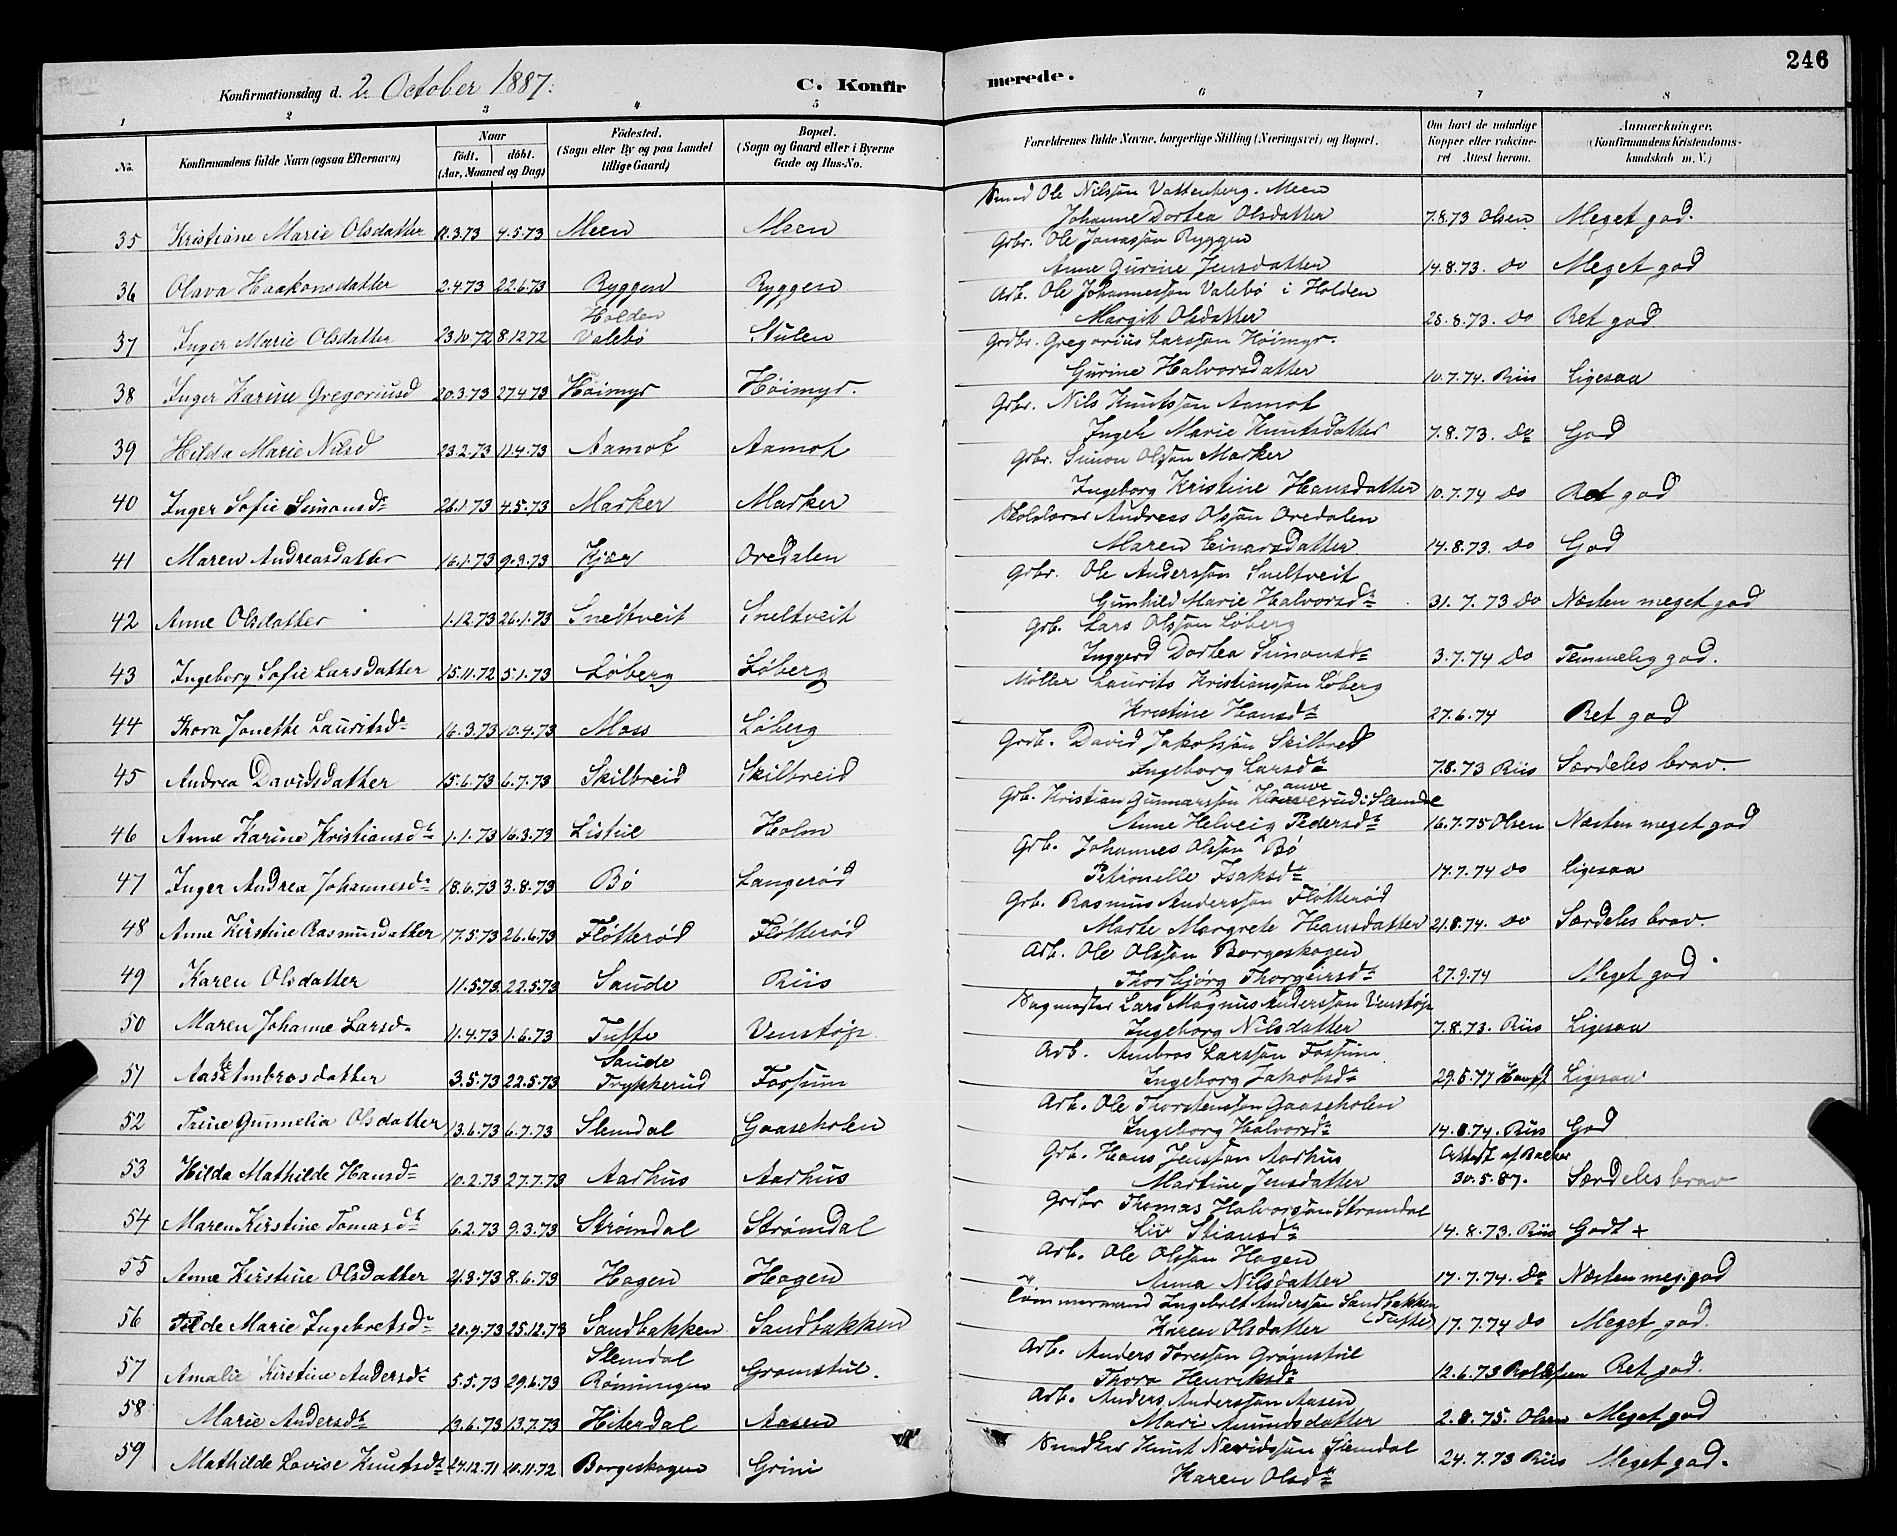 246
Konfirmationsdag d. 2. October 1887.
C. Konfirmerede.
1 2 3 4 5 6 7 8
No. Konfirmandens fulde Navn (ogsaa Efternavn) Naar født. døbt. (Aar, Maaned og Dag) Fødested. (Sogn eller By og paa Landet tillige Gaard) Bopæl. (Sogn og Gaard eller i Byerne Gade og Hus-No.) Forældrenes fulde Navne, borgerlige Stilling (Næringsvei) og Bopæl. Om havt de naturlige Kopper eller vakcineret Attest herom. Anmærkninger. (Konfirmandens Kristendomskundskab m. V.)
Smed Ole Nilsson Vattenberg. Meen
35 Kristiane Marie Olsdatter 11.3.73 4.5.73 Meen Meen Johanne Dortea Olsdatter 7.8.73 Olsen Meget god.
Grbr. Ole Jonasson Ryggen
36 Olava Haakonsdatter 2.4.73 22.6.73 Ryggen Ryggen Anne Gurine Jensdatter 14.8.73. Do Meget god
Arb. Ole Johannesson Valebø i Holden
37 Inger Marie Olsdatter 23.10.72 8.12.72 Holden Valebø Stulen Margit Olsdatter 28.8.73. Do Ret god
Grdbr. Gregorius Larsson Høimyr.
38 Inger Karine Gregoriusd 20.3.73 27.4.73 Høimyr Høimyr. Gurine Halvorsdatter 10.7.74. Riis Ligesaa
Grbr. Nils Knutsson Aamot
39 Hilda Marie Nilsd 23.2.73 11.4.73 Aamot Aamot Inger Marie Knutsdatter 7.8.73. Do God
Grbr. Simon Olsson Marker
40 Inger Sofie Simonsd. 26.1.73 4.5.73 Marker Marker Ingeborg Kristine Hansdatter 10.7.74 Do Ret god
Skolelærer Andreas Olsson Oredalen
41 Maren Andreasdatter 16.1.73 9.3.73 Kjær Oredalen Maren Einarsdatter 14.8.73. Do God
Grbr. Ole Andersson Sneltveit
42 Anne Olsdatter 1.12.73 26.1.73 Sneltveit Sneltveit Gunhild Marie Halvorsd. 31.7.73 Do Næsten meget god
Grb. Lars Olsson Løberg
43 Ingeborg Sofie Larsdatter 15.11.72 5.1.73 Løberg Løberg Inggerd Dortea Simonsd. 3.7.74 Do Temmelig god.
Møller Laurits Kristiansson Løberg
44 Thora Jonette Lauritsd. 16.3.73 10.4.73 Moss Løberg Kristine Hansd. 27.6.74 Ret god
Grdb. David Jakobsson Skilbred
45 Andrea Davidsdatter 15.6.73 6.7.73 Skilbreid Skilbreid Ingeborg Larsd. 7.8.73 Riis Særdeles brav.
Grb. Kristian Gunnarsson i Slemdal
46 Anne Karine Kristiansd. 1.1.73 16.3.73 Listul Holm Anne Helveig Pedersd. 16.7.75 Olsen Næsten meget god
Grb. Johannes Olsson Bø
47 Inger Andrea Johannesd. 18.6.73 3.8.73 Bø Langerød Petronelle Isaksd. 17.7.74 Do Ligesaa
Grb. Rasmus Andersson Fløtterød
48 Anne Kirstine Rasmusdatter 17.5.73 26.6.73 Fløtterød Fløtterød Marte Margrete Hansdatter 21.8.74. Do Særdeles brav.
Arb. Ole Olsson Borgeskogen
49 Karen Olsdatter 11.5.73 22.5.73 Saude Riis Thorbjørg Thorgeirsd. 27.9.74 Meget god
Sagmester Lars Magnus Andersson Venstøp
50 Maren Johanne Larsd. 11.4.73 1.6.73 Tufte Venstøp Ingeborg Nilsdatter 7.8.73. Riis Ligesaa
Arb. Ambros Larsson Fossum
51 Aase Ambrosdatter 3.5.73 22.5.73 Saude Trykkerud Fossum Ingeborg Jakobsd. 29.5.77 Ligesaa
Arb. Ole Thorstensson Gaaseholen
52 Trine Gunnelia Olsdatter 13.6.73 6.7.73 Slemdal Gaaseholen Ingeborg Halvorsd. 14.8.74. Riis God
Grb. Hans Jensson Aarhus
53 Hilda Mathilde Hansd. 10.2.73 27.7.73 Aarhus Aarhus Martine Jensdatter Attest af Backer 30.5.87. Særdeles brav
Grdbr Thomas Halvorsson Strømdal
54 Maren Kirstine Tomasd. 6.2.73 9.3.73 Strømdal Strømdal Liv Stiansd. 14.8.73. Riis Godt +
Arb. Ole Olsson Hagen
55 Anne Kirstine Olsdatter 21.3.73 8.6.73 Hagen Hagen Anna Nilsdatter 17.7.74. Do Næsten meg. god
Tømmermand Ingebret Andersson Sandbakken (Tufte)
56 Tilde Marie Ingebretsd. 20.9.73 25.12.73 Sandbakken Sandbakken Karen Olsdatter 17.7.74 Do Meget god.
Arb. Anders Toresson Grømstul
57 Amalie Kirstine Andersd. 5.5.73 29.6.73 Slemdal Rønningen Gromstul. Thora Henriksd. 12.6.73 Ret god.
Arb. Anders Andersson Aasen
58 Marie Andersd. 13.6.73 13.7.73 Hiterdal Aasen Mari Amundsdatter 2.8.75. Olsen Meget god
Snedker Knut Slemdal
59 Mathilde Lovise Knutsd. 27.12.71 10.11.72 Borgeskogen Grini Karen Olsd. 24.7.73 Riis Meget god.